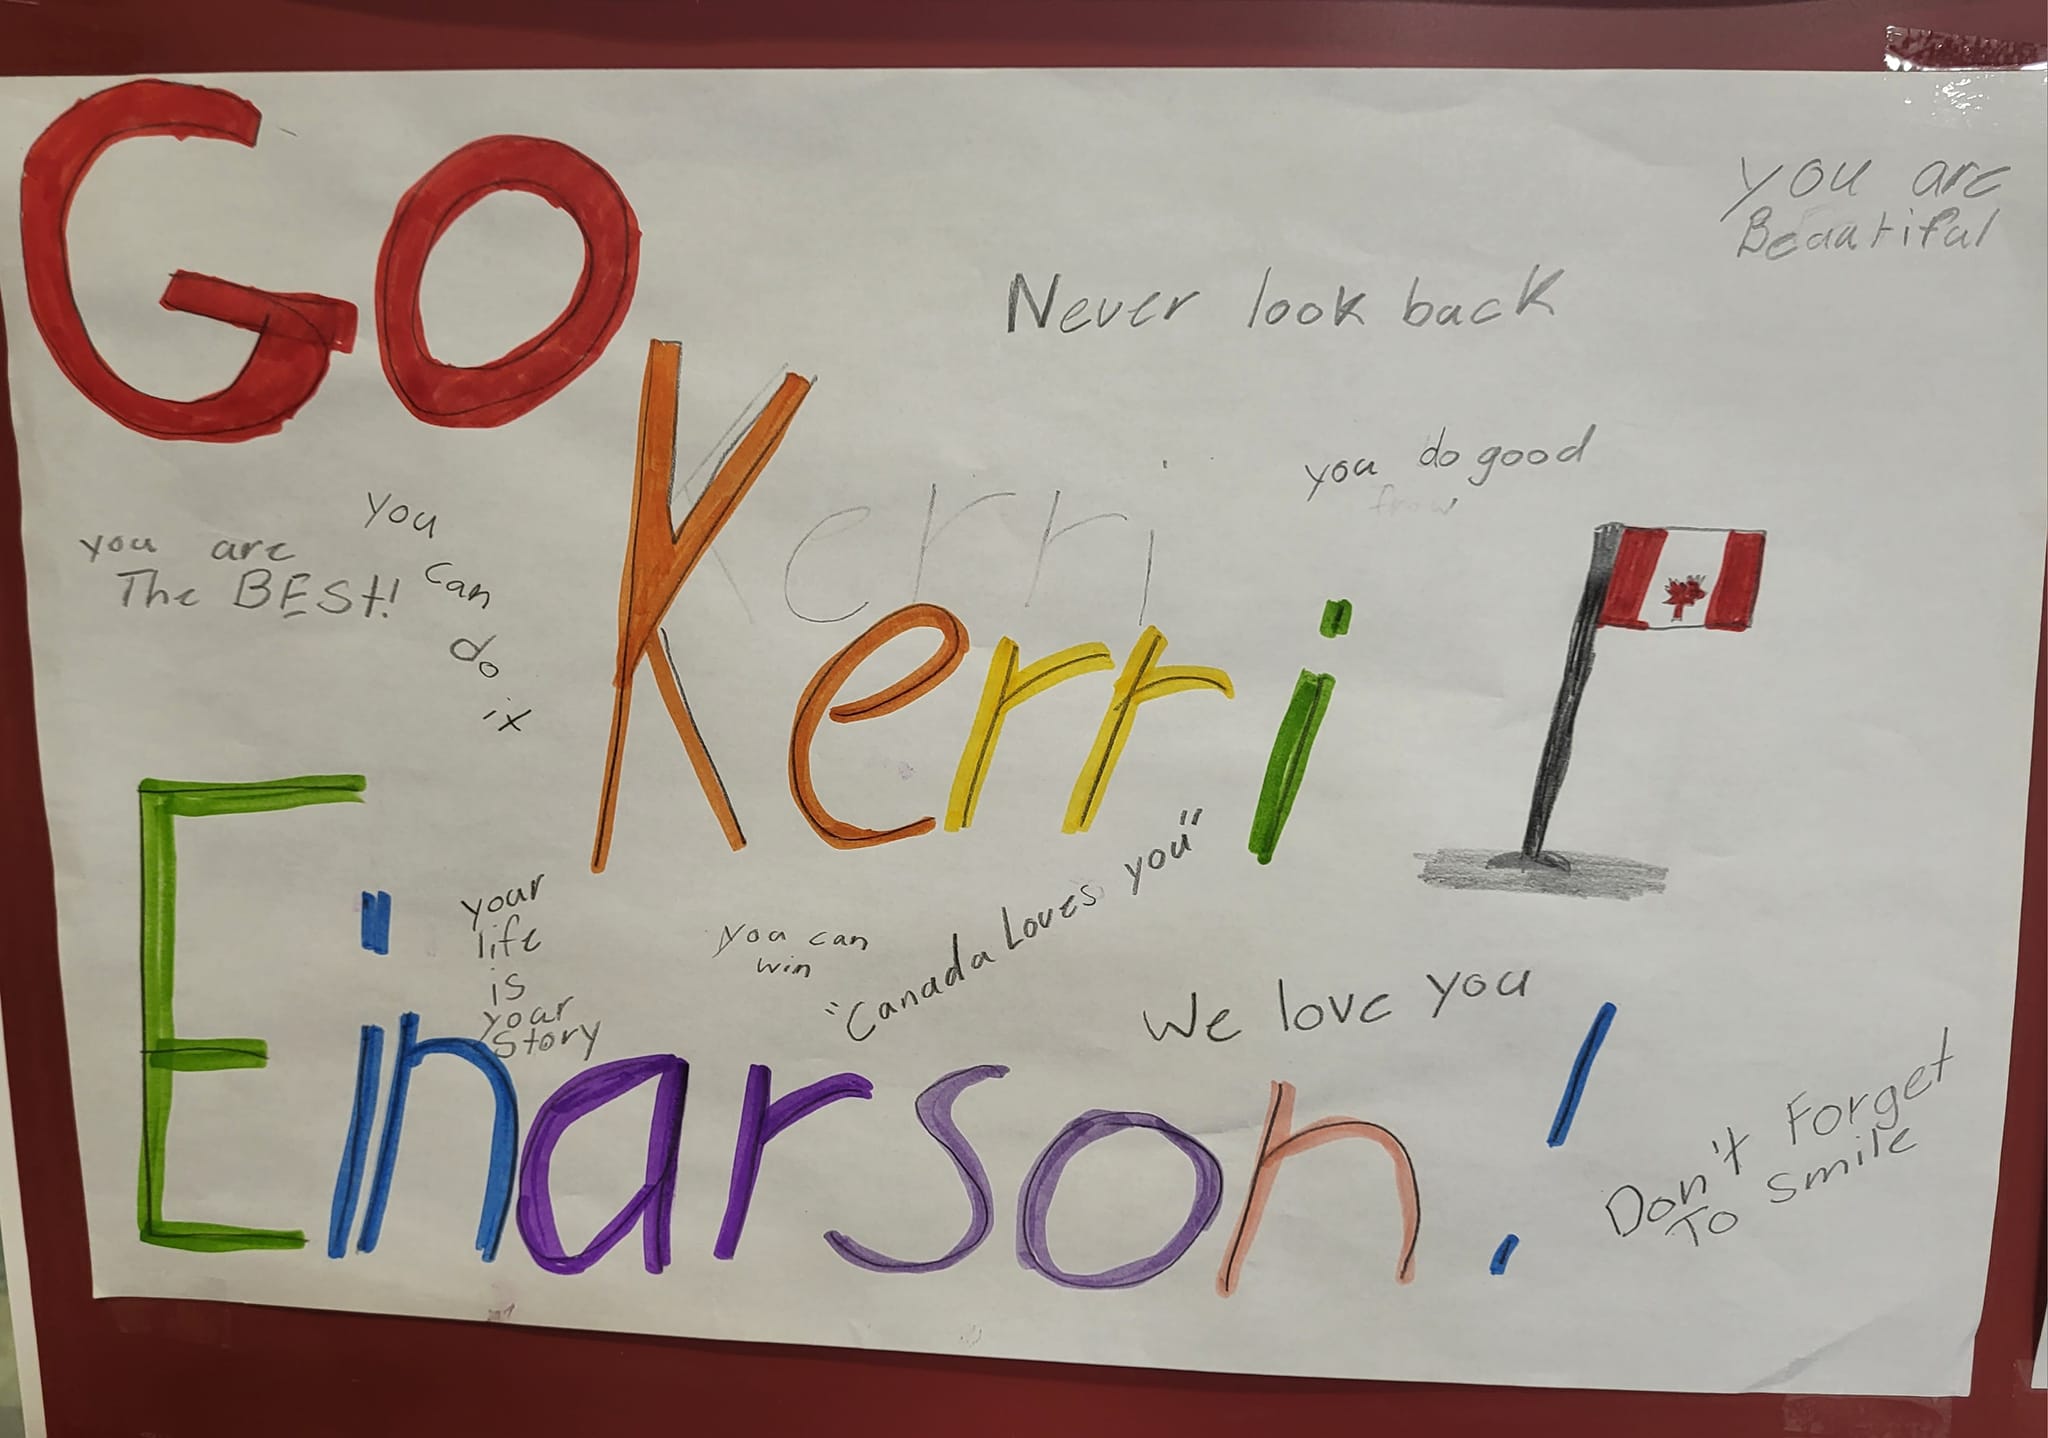 GO
you are
Beautiful
Never look back
you do good
Kerri
you are
The BEST!
you
can
do
it
Kerri
your
life
is
your
story
you can
win
"Canada Loves you"
We love you
Einarson!
Don't Forget
To smile